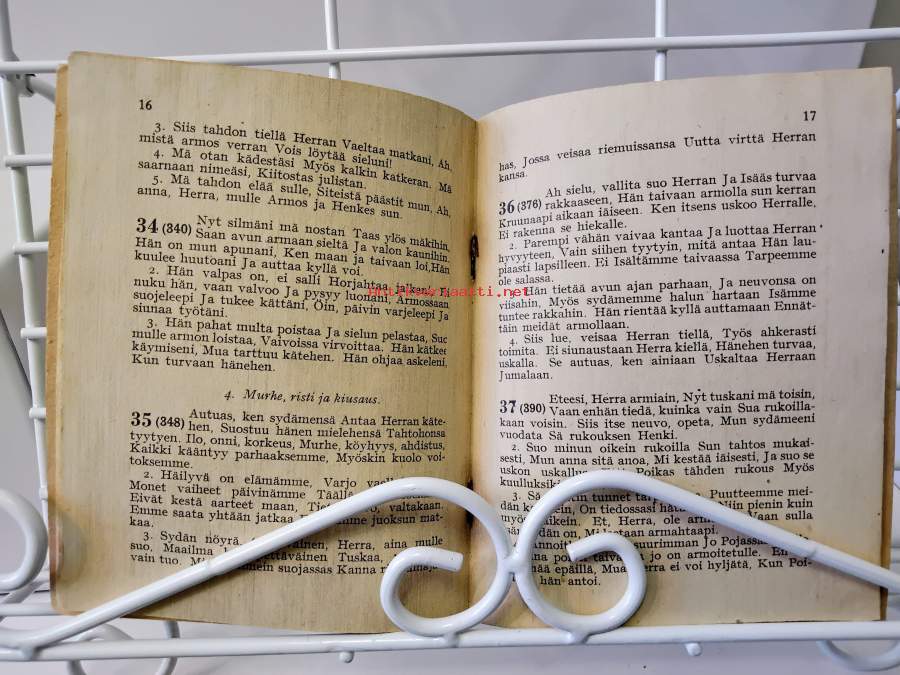 16
3. Siis tahdon tiellä Herran Vaeltaa matkani, Ah,
mistä armos verran Vois löytää sieluni!
4. Mä otan kädestäsi Myös kalkin katkeran. Mä
saarnaan nimeäsi, Kiitostas julistan.
5. Mä tahdon elää sulle, Siteistä päästit mun, Ah,
anna, Herra, mulle Armos ja Henkes sun.
34 (840) Nyt silmäni mä nostan Taas ylös mäkihin,
Saan avun armaan sieltä Ja valon kaunihin.
Hän on mun apunani, Ken maan ja taivaan loi, Hän
kuulee huutoani Ja auttaa kyllä voi.
2. Hän valpas on, ei salli Horjahtaa jalkani, Ei
nuku hän, vaan valvoo Ja pysyy luonani, Armossaan
suojeleepi Ja tukee kättäni, Öin, päivin varjeleepi Ja
siunaa työtäni.
3. Hän pahat multa poistaa Ja sielun pelastaa, Suo
mulle armon loistaa, Vaivoissa virvoittaa. Hän kätkee
käymiseni, Mua tarttuu kätehen. Hän ohjaa askeleni,
Kun turvaan hänehen.
4. Murhe, risti ja kiusaus.
35 (348) Autuas, ken sydämensä Antaa Herran käte-
hen, Suostuu hänen mielehensä Tahtohonsa
tyytyen. Ilo, onni, korkeus, Murhe, köyhyys, ahdistus,
Kaikki kääntyy parhaaksemme, Myöskin kuolo voi-
toksemme.
2. Häilyvä on elämämme, Varjo
Monet vaiheet päivinämme Täällä
Eivät kestä aarteet maan, valtakaan.
Emme saata yhtään jatkaa juoksun mat-
kaa.
3. Sydän nöyrä, Herra, aina mulle
suo, Maailma Tuskaa,
vain tuo. suojassas Kanna
17
has, Jossa veisaa riemuissansa Uutta virttä Herran
kansa.
36 (376) Ah sielu, vallita suo Herran Ja Isääs turvaa
rakkaaseen, Hän taivaan armolla sun kerran
Kruunaapi aikaan iäiseen. Ken itsens uskoo Herralle,
Ei rakenna se hiekalle.
2. Parempi vähän vaivaa kantaa Ja luottaa Herran
hyvyyteen, Vain siihen tyytyin, mitä antaa Hän lau-
piaasti lapsilleen. Ei Isältämme taivaassa Tarpeemme
ole salassa.
Hän tietää avun ajan parhaan, Ja neuvonsa on
viisahin, Myös sydämemme halun hartaan Isämme
tuntee rakkahin. Hän rientää kyllä auttamaan Ennät-
täin meidät armollaan.
4. Siis lue, veisaa Herran tiellä, Työs ahkerasti
toimita. Ei siunaustaan Herra kiellä, Hänehen turvaa,
uskalla. Se autuas, ken ainiaan Uskaltaa Herraan
Jumalaan.
37 (390) Eteesi, Herra armiain, Nyt tuskani mä toisin,
Vaan enhän tiedä, kuinka vain Sua rukoilla-
kaan voisin. Siis itse neuvo, opeta, Mun sydämeeni
vuodata Sä rukouksen Henki.
2. Suo minun oikein rukoilla Sun tahtos mukai-
sesti, Mun anna sitä anoa, Mi kestää iäisesti, Ja suo se
uskon uskallus Poikas tähden rukous Myös
3. Sä tunnet Puutteemme mei-
dän On tiedossasi Niin pienin kuin
Et, Herra, ole Vaan sulla
on, armahtaapi,
Jo Pojassas
jo on armoitetulle. En
epäillä, Mua Herra ei voi hyljätä, Kun Poi-
hän antoi.
Antikvariaatti.net